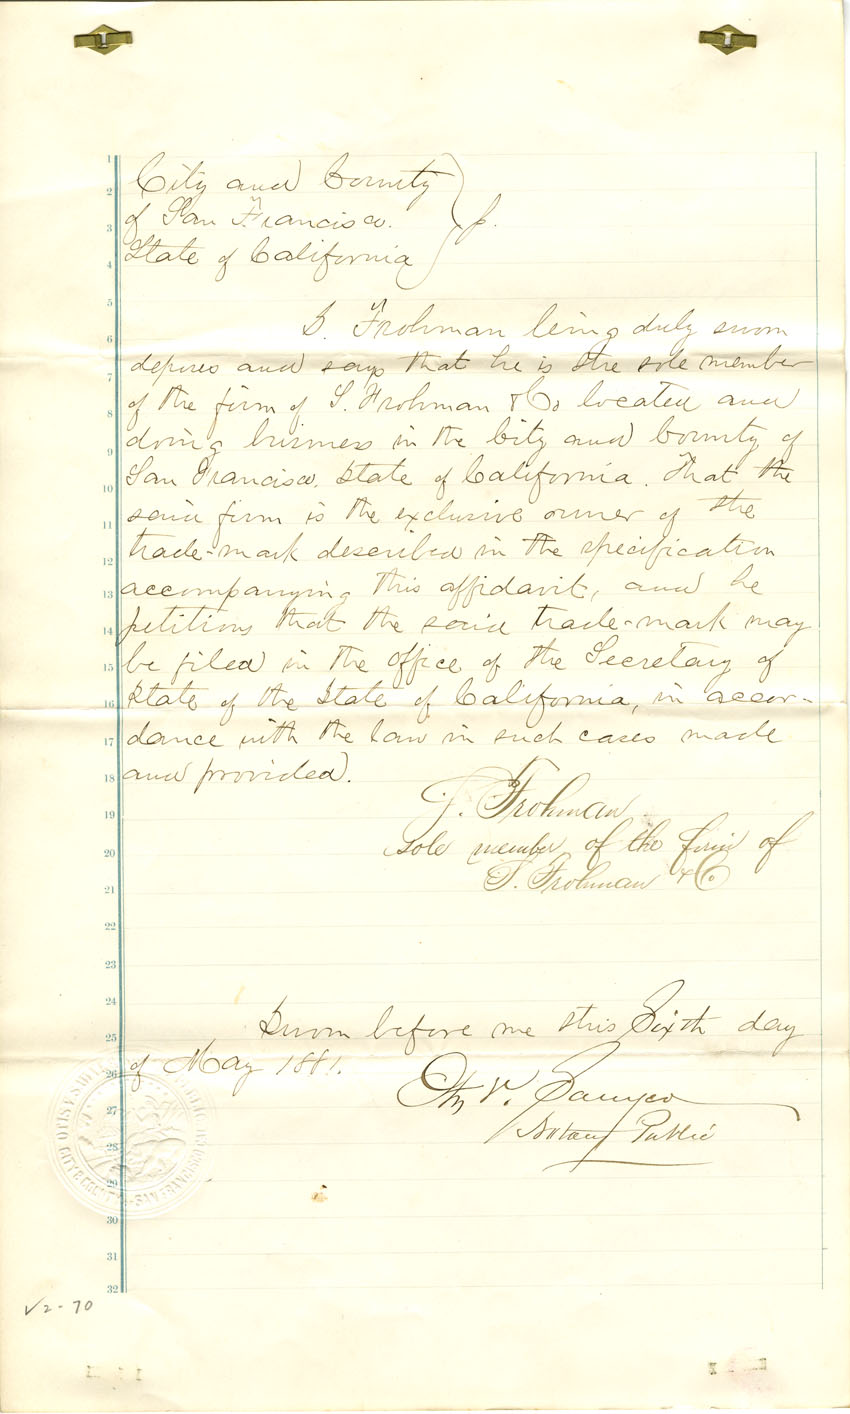 City and County
of San Francisco.
State of California
S. Frohman being duly sworn
deposes and says that he is the sole member
of the firm of S. Frohman & Co located and
doing business in the City and County of
San Francisco, State of California. That the
said firm is the exclusive owner of the
trade-mark described in the specification
accompanying this affidavit, and he
petitions that the said trade-mark may
be filed in the office of the Secretary of
State of the State of California, in accor-
dance with the law in such cases made
and provided.
S. Frohman
sole member of the firm of
S. Frohman & Co
Sworn before me this Sixth day
of May 1881.
Otis V. Sawyer
Notary Public
1
2
3
4
5
6
7
8
9
10
11
12
13
14
15
16
17
18
19
20
21
22
23
24
25
26
27
28
29
30
31
32
V2-70